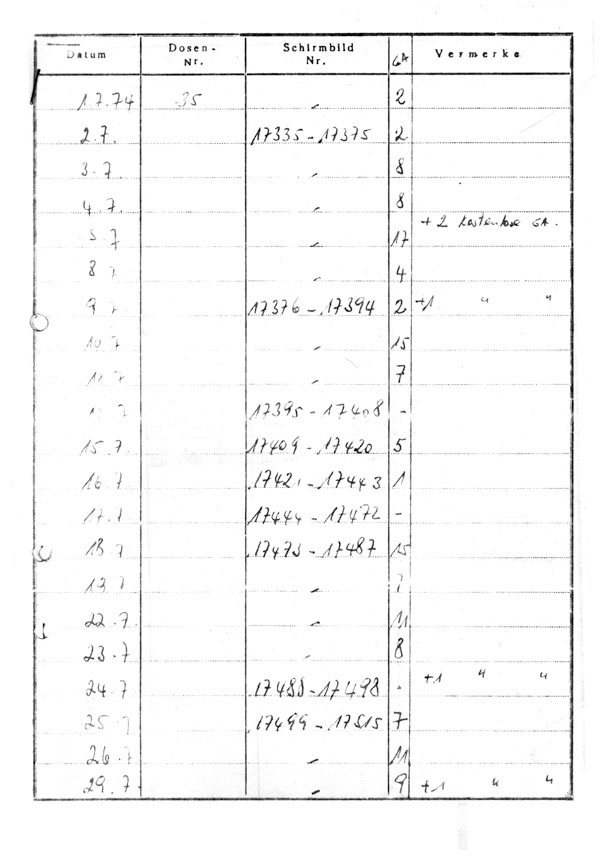 Datum Dosen-Nr. Schirmbild Nr. GA Vermerke
1.7.74 35 „ 2
2.7. 17335-17375 2
3.7 „ 8
4.7. „ 8
+ 2 kostenlose GA.
5.7 „ 17
8.7 „ 4
9.7 17376-17394 2 +1 " "
10.7 „ 15
11.7 „ 7
17395-17408 -
15.7. 17409-17420 5
16.7 17421-17443 1
17.7 17444-17472 -
18.7 17473-17487 15
19.7 „
22.7 „ 11
23.7 „ 8
24.7 17488-17498 - +1 " "
25.7 17499-17515 7
26.7 „ 11
29.7 „ 9 +1 " "